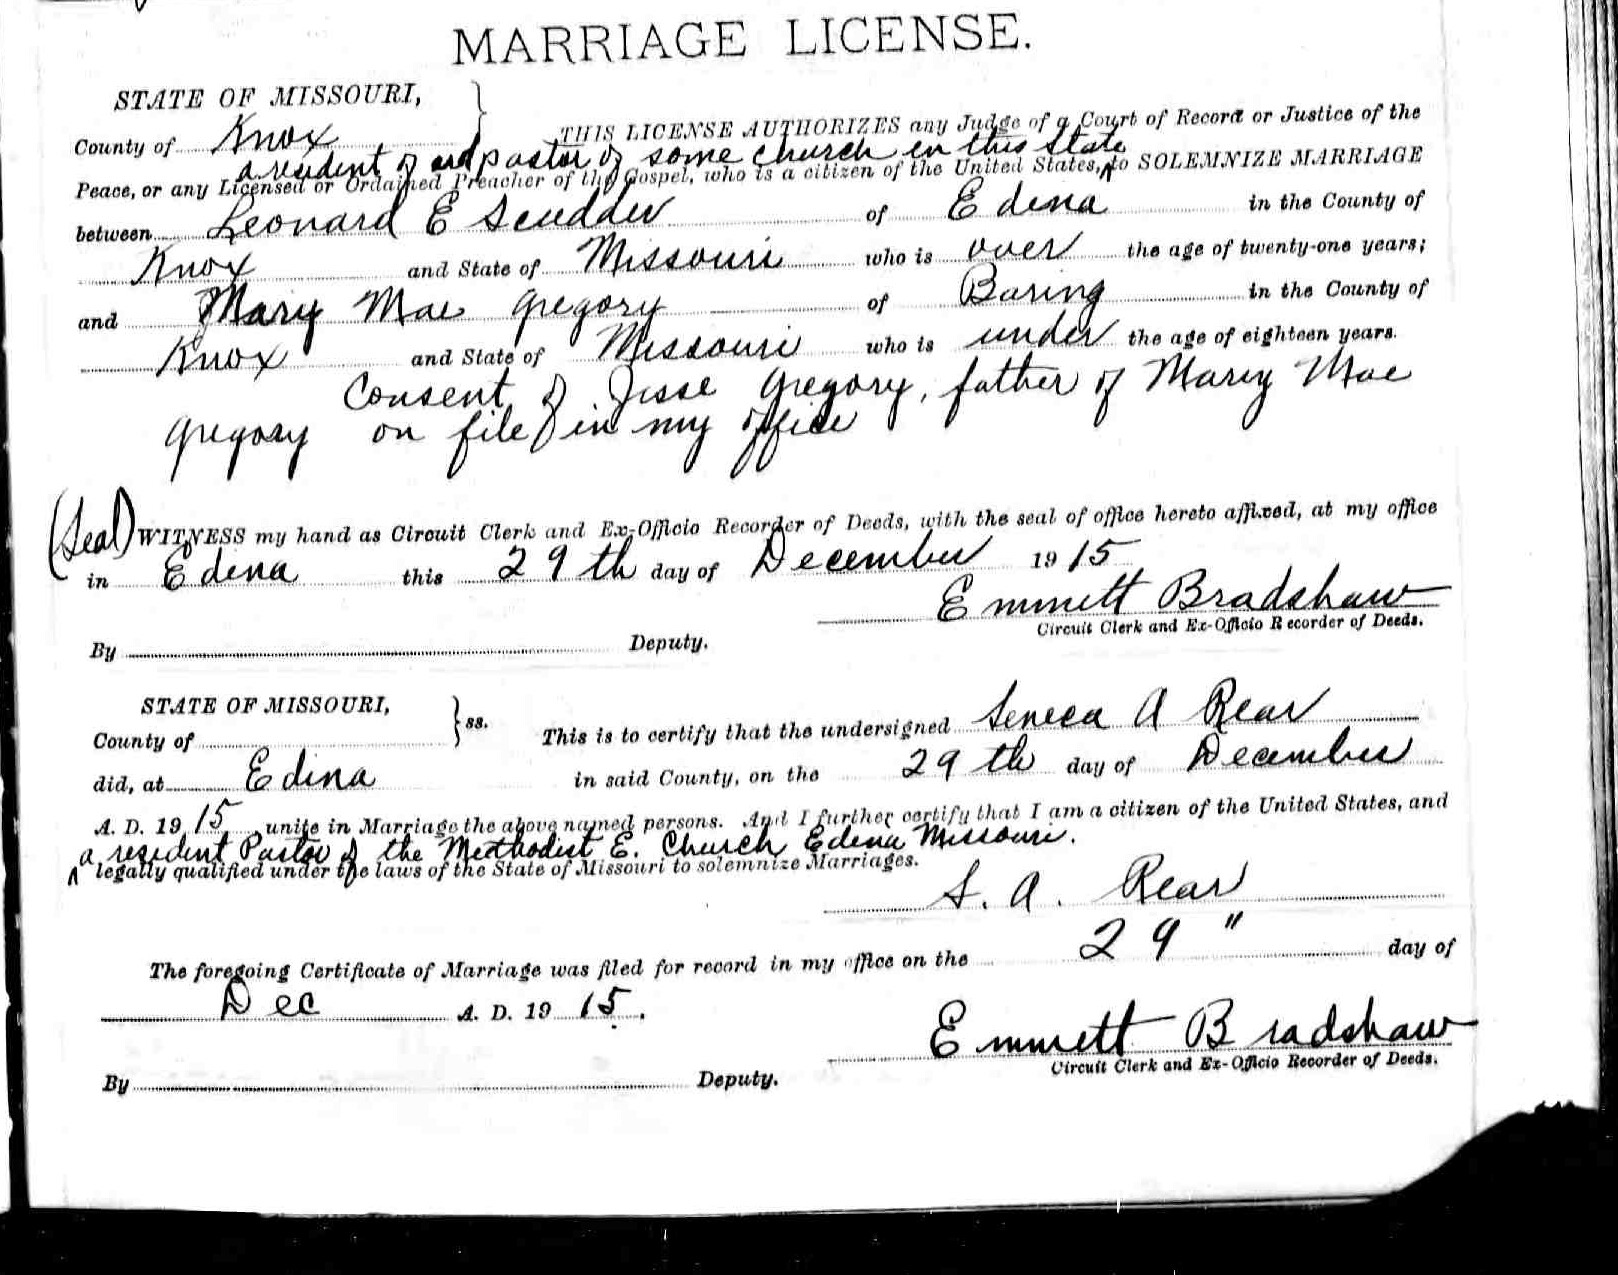 MARRIAGE LICENSE.
STATE OF MISSOURI,
County of Knox THIS LICENSE AUTHORIZES any Judge of a Court of Record or Justice of the
a resident of and pastor of some church in this state
Peace, or any Licensed or Ordained Preacher of the Gospel, who is a citizen of the United States, to SOLEMNIZE MARRIAGE
between Leonard E Scudder of Edina in the County of
Knox and State of Missouri who is over the age of twenty-one years;
and Mary Mae Gregory of Baring in the County of
Knox and State of Missouri who is under the age of eighteen years.
Consent of Jesse Gregory, father of Mary Mae
Gregory on file in my office
(Seal) WITNESS my hand as Circuit Clerk and Ex-Officio Recorder of Deeds, with the seal of office hereto affixed, at my office
in Edina this 29th day of December 1915
Emmett Bradshaw
Circuit Clerk and Ex-Officio Recorder of Deeds.
By Deputy.
STATE OF MISSOURI,
County of } ss. This is to certify that the undersigned Seneca A Rear
did, at Edina in said County, on the 29th day of December
A. D. 1915, unite in Marriage the above named persons. And I further certify that I am a citizen of the United States, and
a resident Pastor of the Methodist E. Church Edina Missouri.
legally qualified under the laws of the State of Missouri to solemnize Marriages.
S. A. Rear
The foregoing Certificate of Marriage was filed for record in my office on the 29 " day of
Dec A. D. 1915.
Emmett Bradshaw
Circuit Clerk and Ex-Officio Recorder of Deeds.
By Deputy.